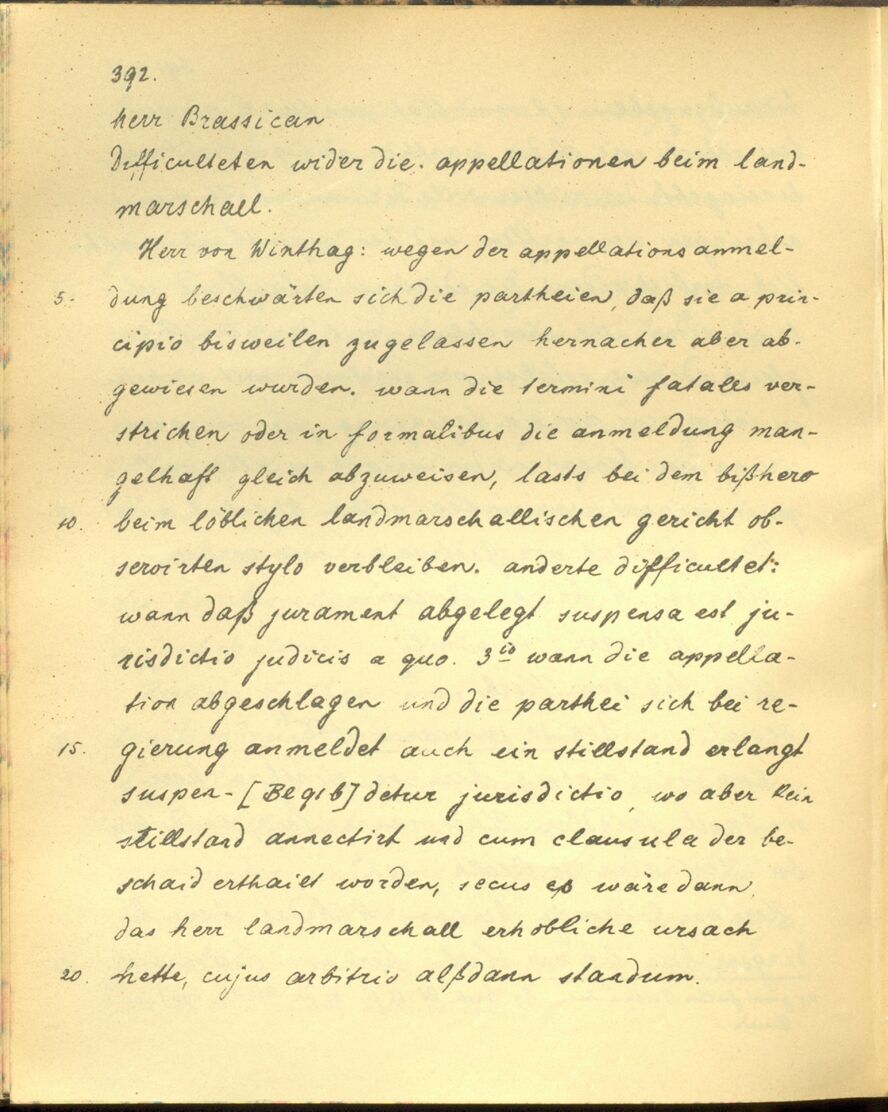 392.
herr Brassican
Difficulteten wider die. appellationen beim land-
marschall.
Herr von Winthag: wegen der appellationsanmel-
5. dung beschwärten sich die partheien, daß sie a prin-
cipio bisweilen zugelassen hernacher aber ab-
gewiesen wurden. wann die termini fatales ver-
strichen oder in formalibus die anmeldung man-
gelhaft gleich abzuweisen, lasts bei dem bißhero
10. beim löblichen landmarschallischen gericht ob-
servirten stylo verbleiben. anderte difficultet:
wann daß jurament abgelegt suspensa est ju-
risdictio judicis a quo. 3io wann die appella-
tion abgeschlagen und die parthei sich bei re-
15. gierung anmeldet auch ein stillstand erlangt
suspen- [Beg1b] detur jurisdictio, wo aber kein
stillstand annectirt und cum clausula der be-
schaid erthailt worden, secus es wäre dann
das herr landmarschall erhobliche ursach
20. hette, cujus arbitrio alßdann standum.